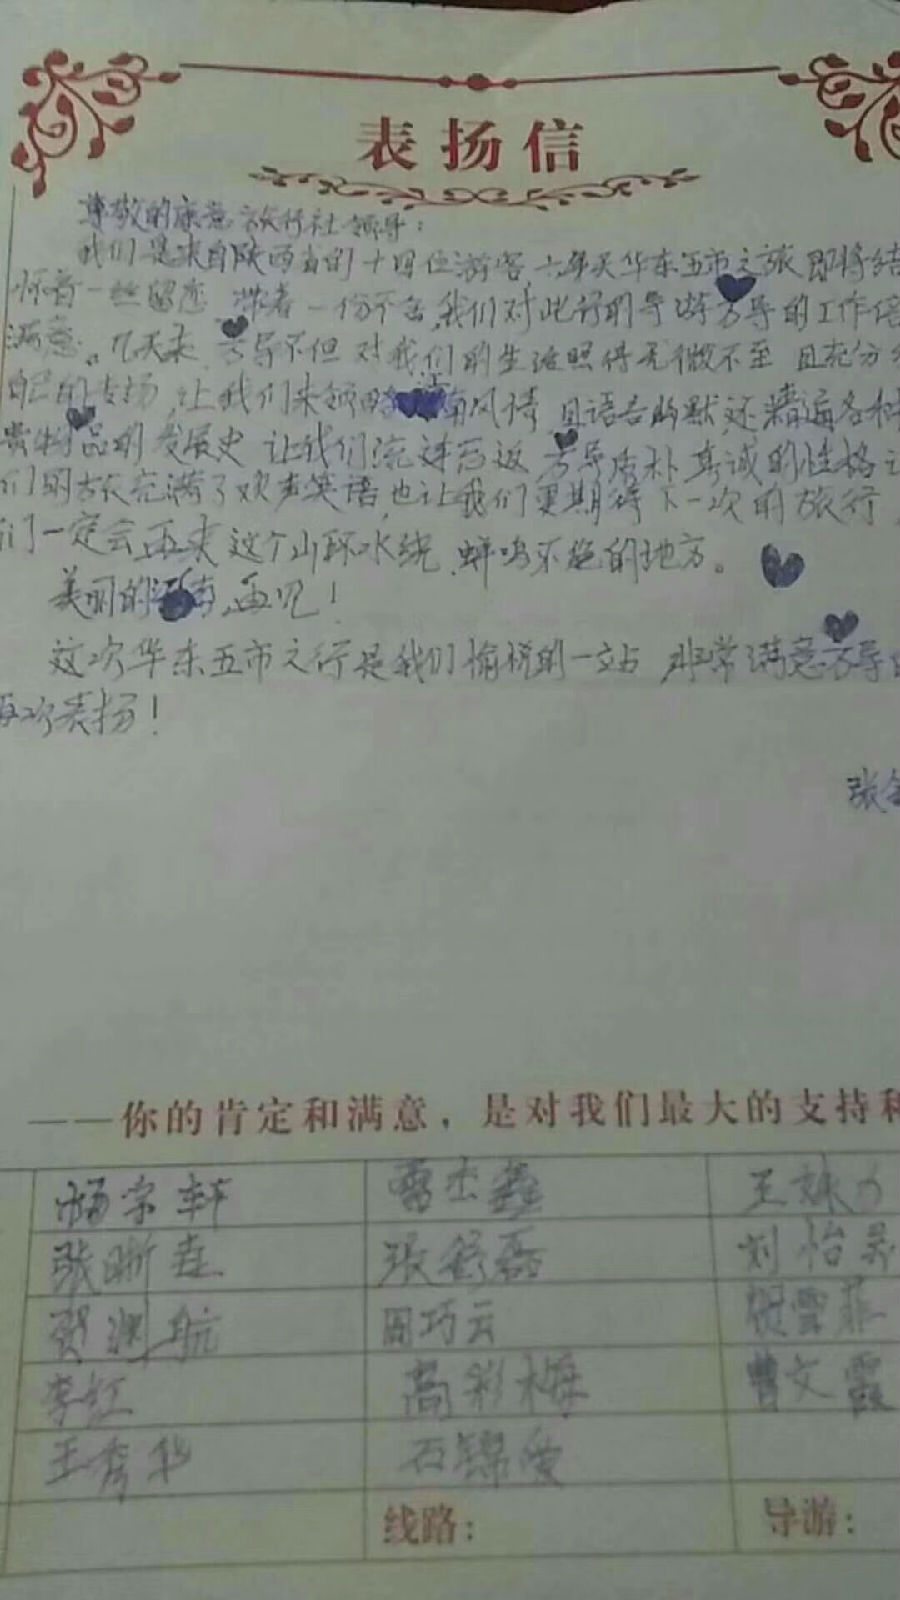 表扬信
尊敬的康意旅行社领导：
我们是来自陕西省的十四位游客，六天华东五市之旅即将结
怀着一丝留恋，带着一份不舍，我们对此行的导游方导的工作倍
满意。几天来，方导不但对我们的生活照得无微不至 且充分
自己的专扬，让我们来领略南风情 且语言幽默还精通各种
物品的发展史 让我们流连忘返 方导质朴真诚的性格
们的旅充满了欢声笑语，也让我们更期待下一次的旅行，
们一定会再来这个山环水绕、蝉鸣不绝的地方。
美丽的，再见！
这次华东五市之行是我们愉悦的一站 非常满意方导
再次表扬！
张
——你的肯定和满意，是对我们最大的支持和
杨宗轩 雷杰鑫 王
张晰垚 张舒磊 刘怡
贺渊航 周巧云 雪菲
李红 高彩梅 曹文霞
王秀华 石锦爱
线路： 导游：